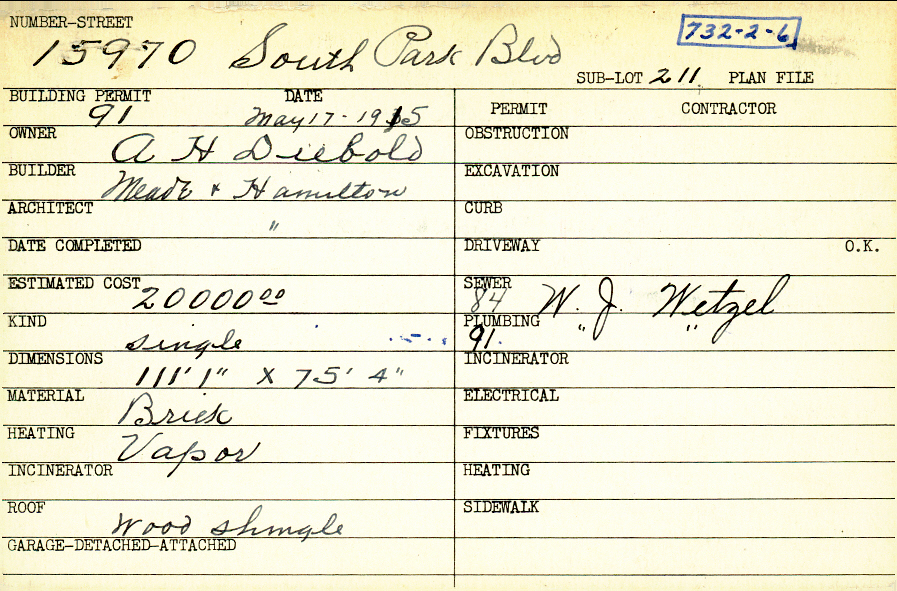 NUMBER-STREET
15970 South Park Blvd
732-2-6
SUB-LOT 211 PLAN FILE
BUILDING PERMIT 91 DATE May 17-1915
PERMIT CONTRACTOR
OWNER A H Diebold
OBSTRUCTION
BUILDER Meade & Hamilton
EXCAVATION
ARCHITECT "
CURB
DATE COMPLETED
DRIVEWAY O.K.
ESTIMATED COST 20000.00
SEWER 84 W. J. Wetzel
KIND single
PLUMBING 91. " "
DIMENSIONS 111' 1" X 75' 4"
INCINERATOR
MATERIAL Brick
ELECTRICAL
HEATING Vapor
FIXTURES
INCINERATOR
HEATING
ROOF Wood shingle
SIDEWALK
GARAGE-DETACHED-ATTACHED